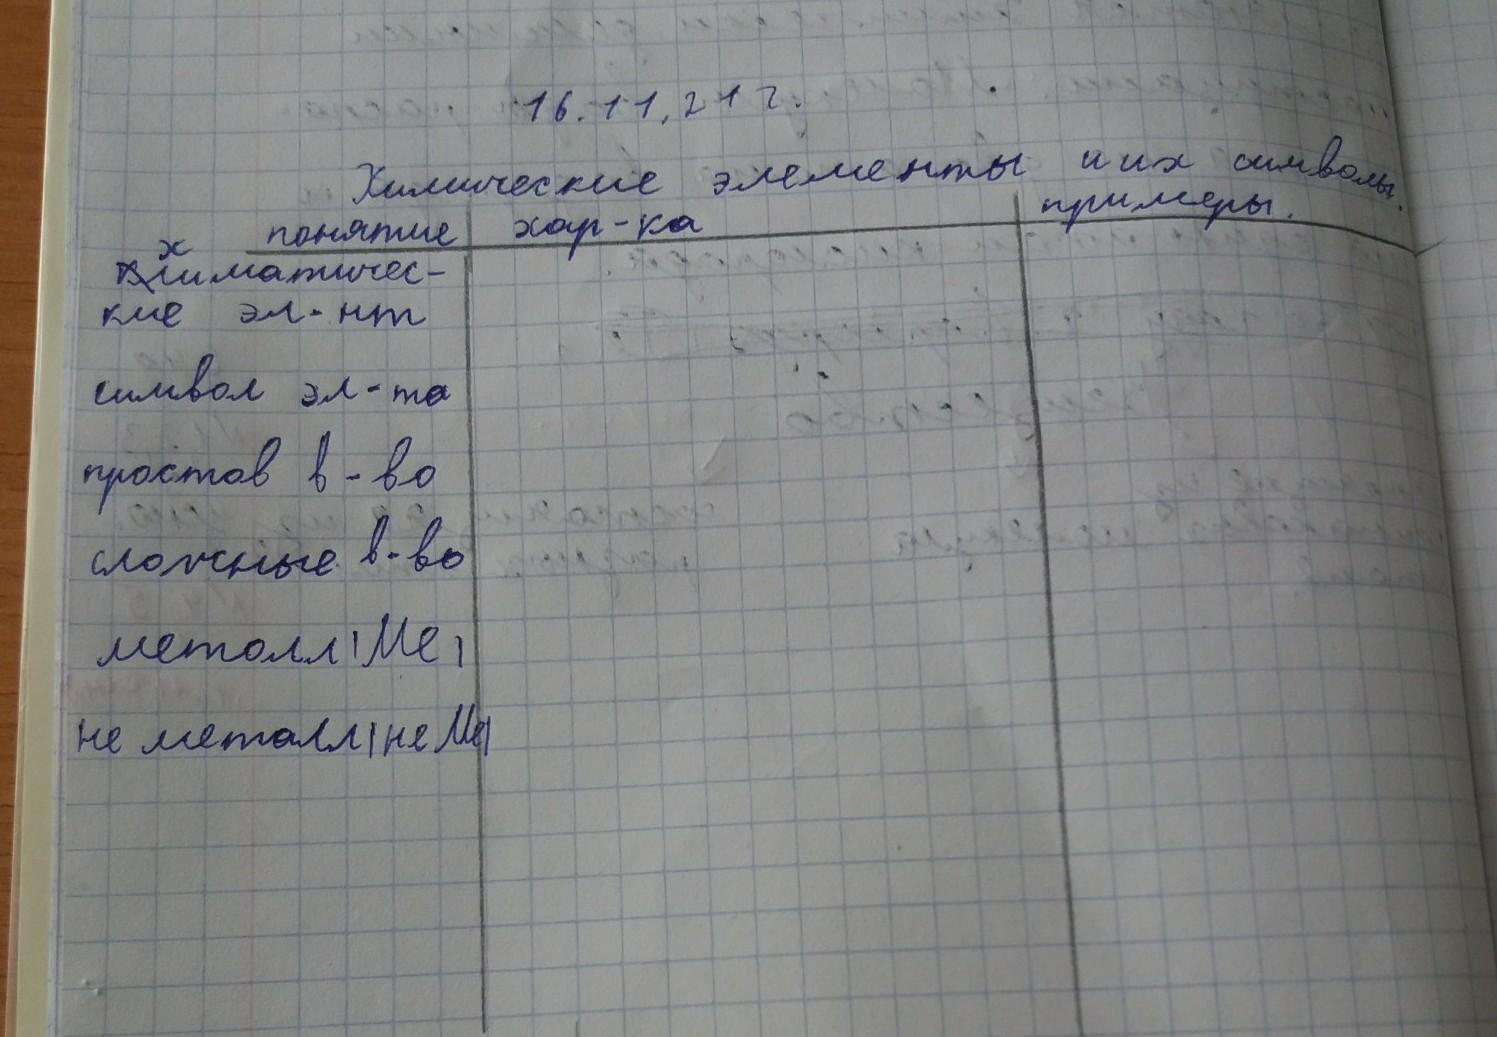 16.11.21 г.
Химические элементы и их символы.
понятие хар-ка примеры.
химатичес-
кие эл-нт
символ эл-та
простов в-во
сложные в-во
металл (Ме)
не металл (не Ме)